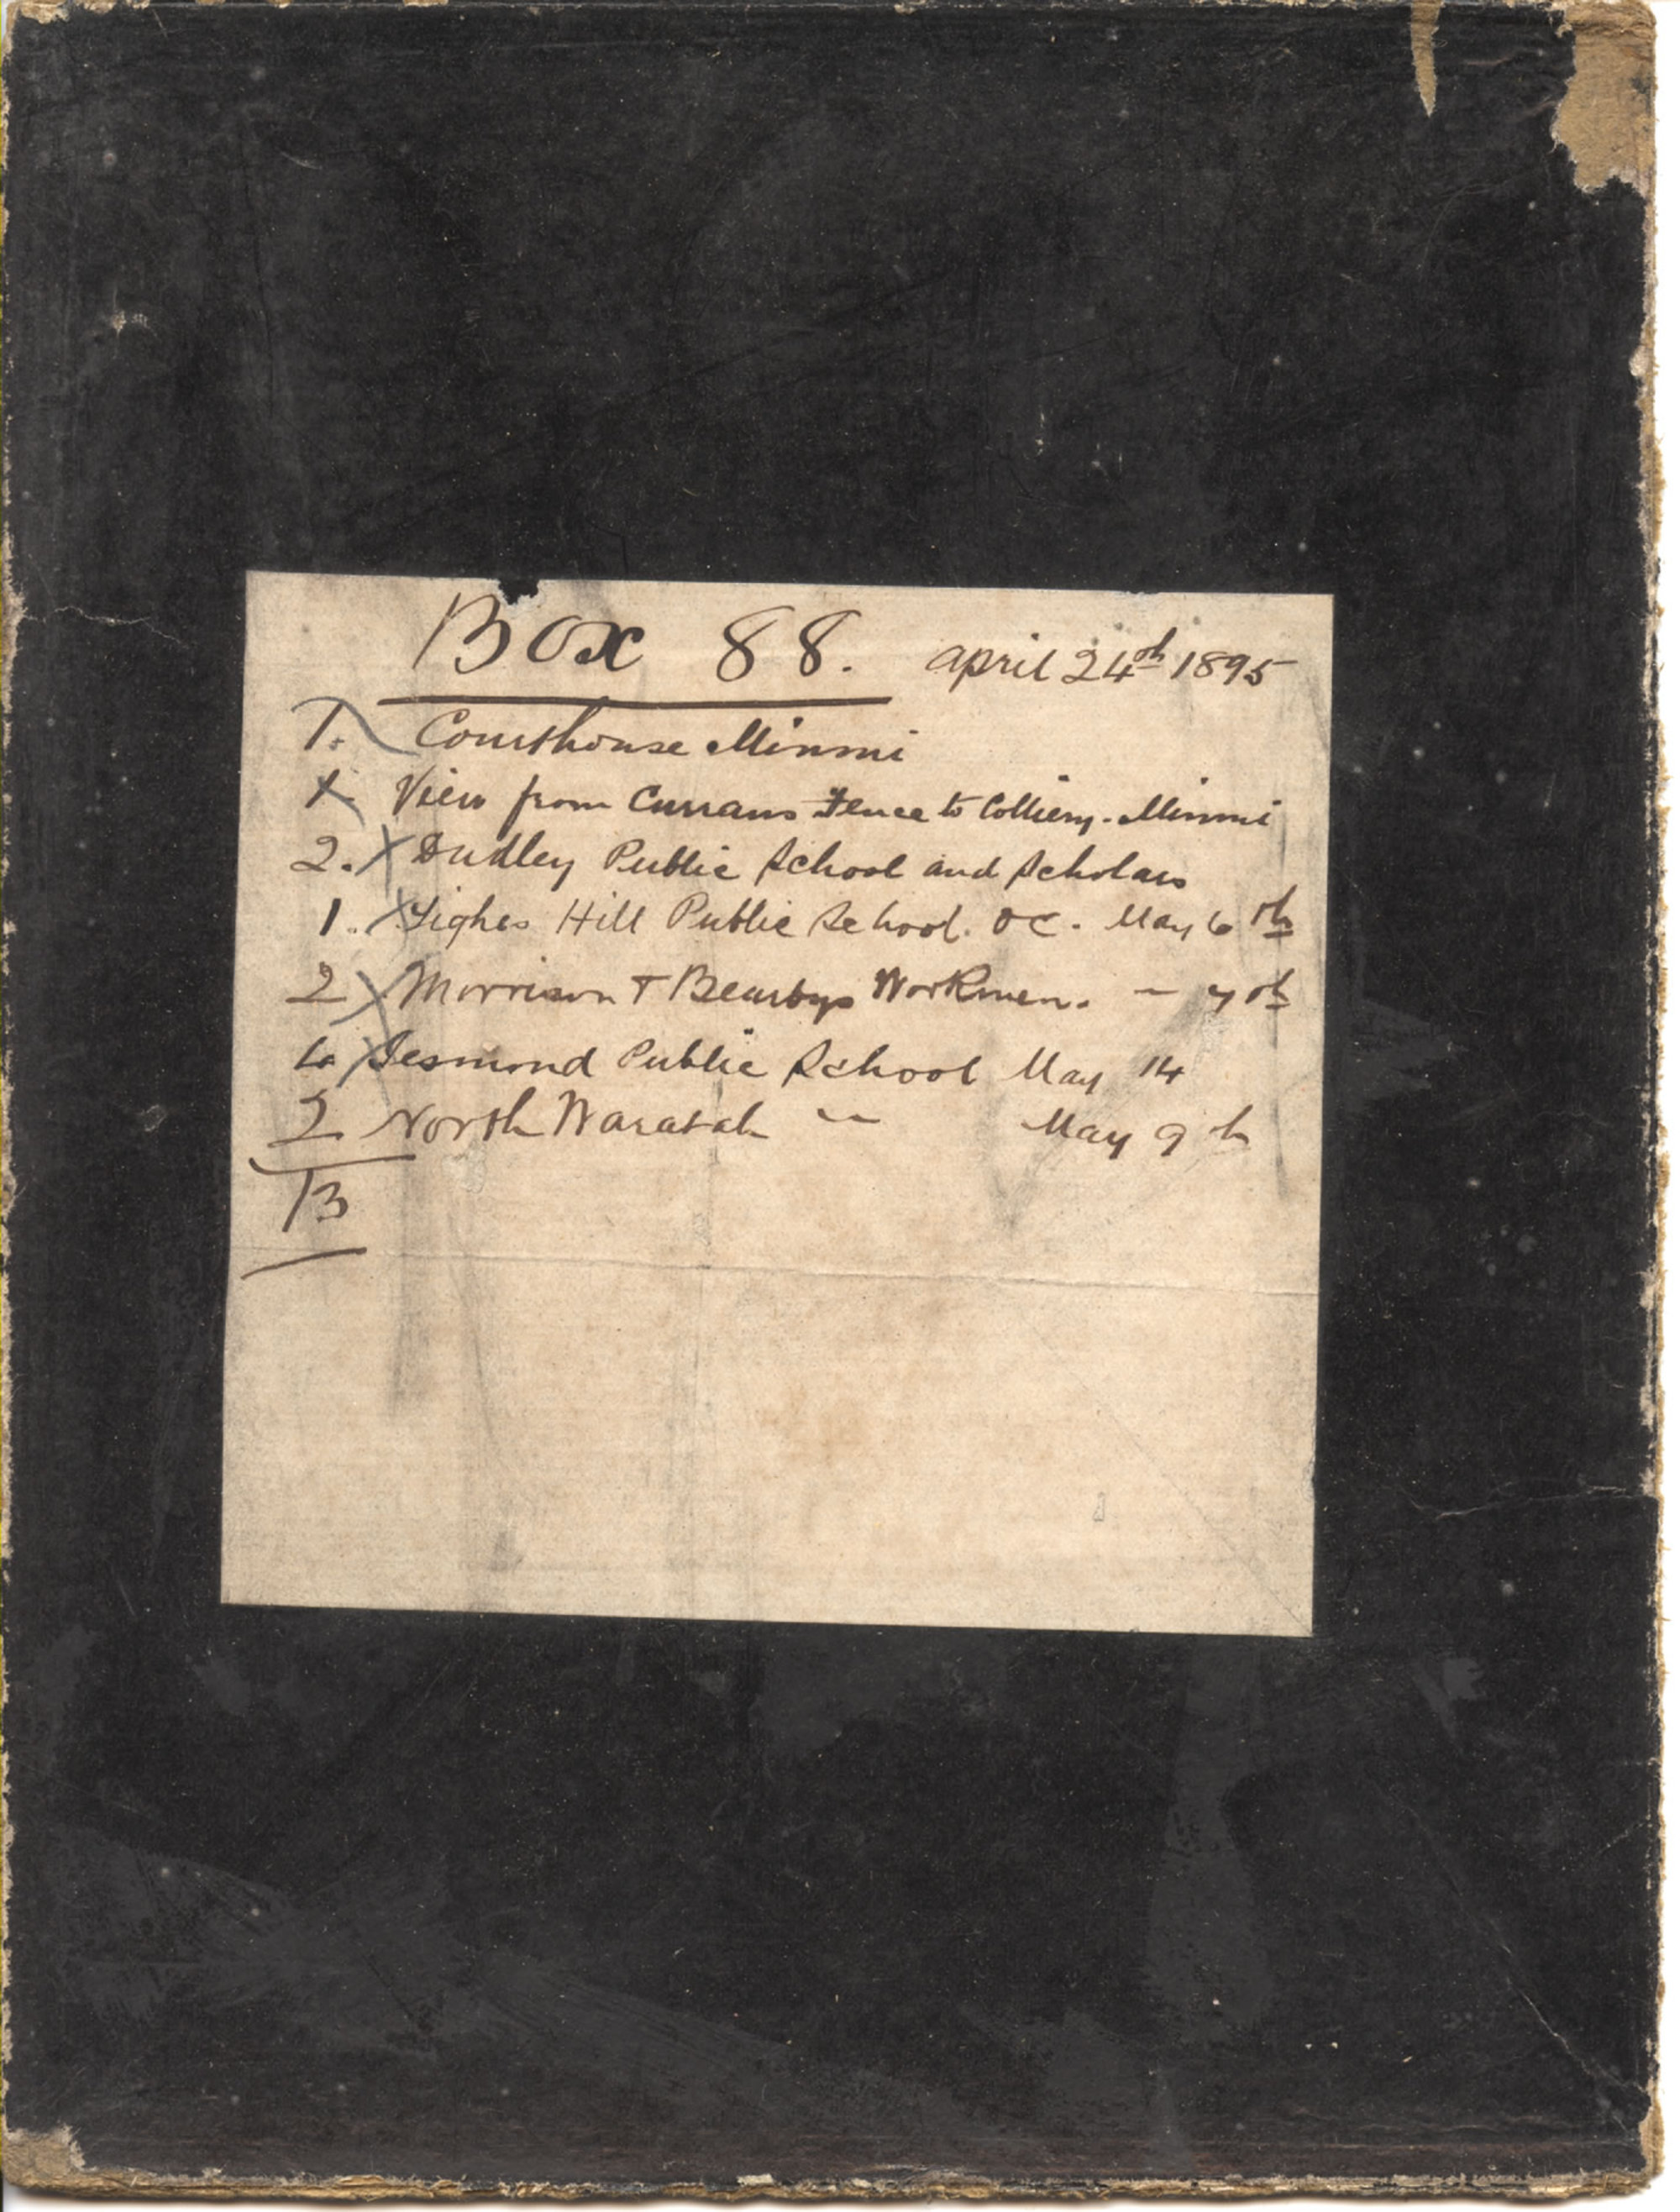 Box 88. April 24th 1895
1. Courthouse Minmi
1. View from Currans Fence to Colliery. Minmi
2. X Dudley Public School and Scholars
1. X Tighes Hill Public School. OC. May 6th
2 X Morrison + Bearbys Workmen. — 7th
4 X Jesmond Public School May 14
2 North Waratah " May 9th
13